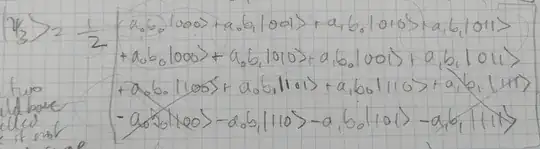 |Ψ₃> = 1/2 [ a₀b₀|000> + a₀b₁|001> + a₁b₀|010> + a₁b₁|011>
+ a₀b₀|000> + a₀b₁|010> + a₁b₀|001> + a₁b₁|011>
+ a₀b₀|100> + a₀b₁|101> + a₁b₀|110> + a₁b₁|111>
- a₀b₀|100> - a₀b₁|110> - a₁b₀|101> - a₁b₁|111> ]
two